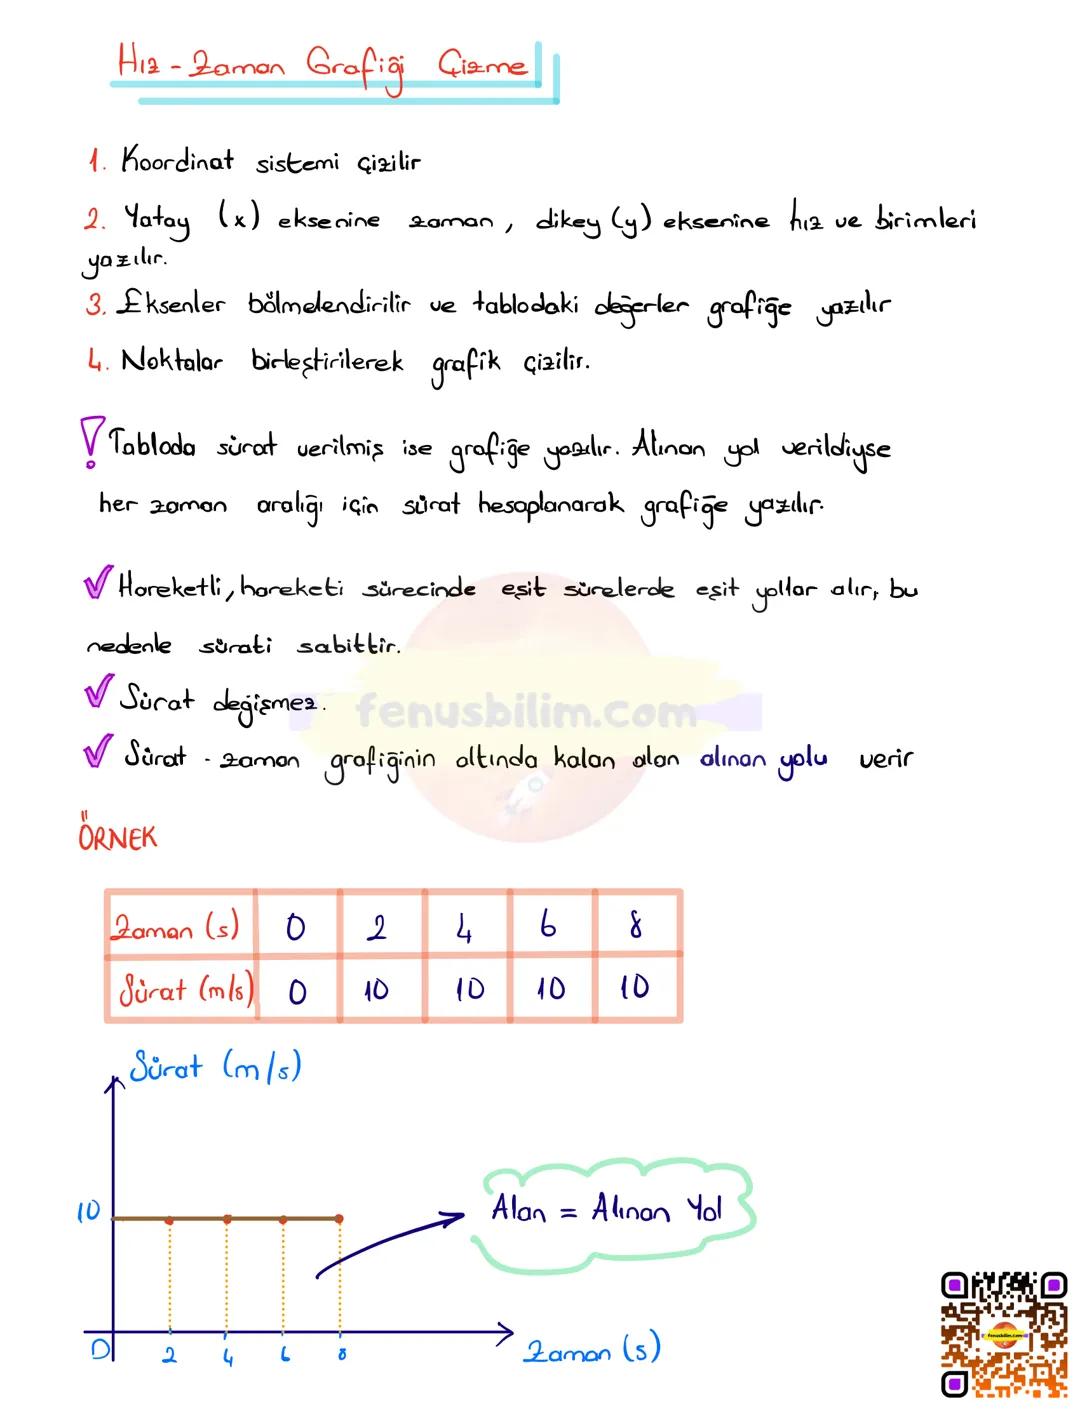 Hız - Zaman Grafiği Çizme
1. Koordinat sistemi çizilir
2. Yatay (x) eksenine zaman, dikey (y) eksenine hız ve birimleri
yazılır.
3. Eksenler bölmelendirilir ve tablodaki değerler grafiğe yazılır
4. Noktalar birleştirilerek grafik çizilir.
! Tabloda sürat verilmiş ise grafiğe yazılır. Alınan yol verildiyse
her zaman aralığı için sürat hesaplanarak grafiğe yazılır.
Hareketli, hareketi sürecinde eşit sürelerde eşit yollar alır, bu
nedenle sürati sabittir.
Sürat değişmez.
fenusbilim.com
Sürat - zaman grafiğinin altında kalan alan alınan yolu verir
ÖRNEK
Zaman (s) 0 2 4 6 8
Sürat (m/s) 0 10 10 10 10
Sürat (m/s)
10
Alan = Alınan Yol
0 2 4 6 8
Zaman (s)
fenusbilim.com